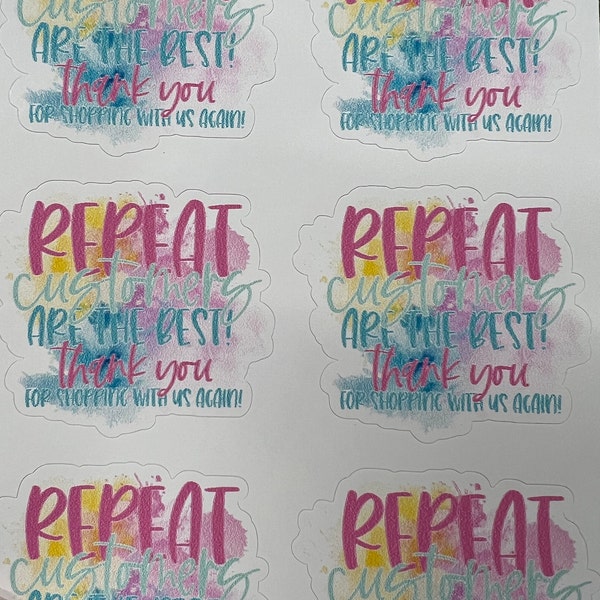 customers
ARE THE BEST!
thank you
FOR SHOPPING WITH US AGAIN!
customers
ARE THE BEST!
thank you
FOR SHOPPING WITH US AGAIN!
REPEAT
customers
ARE THE BEST!
thank you
FOR SHOPPING WITH US AGAIN!
REPEAT
customers
ARE THE BEST!
thank you
FOR SHOPPING WITH US AGAIN!
REPEAT
customers
REPEAT
customers